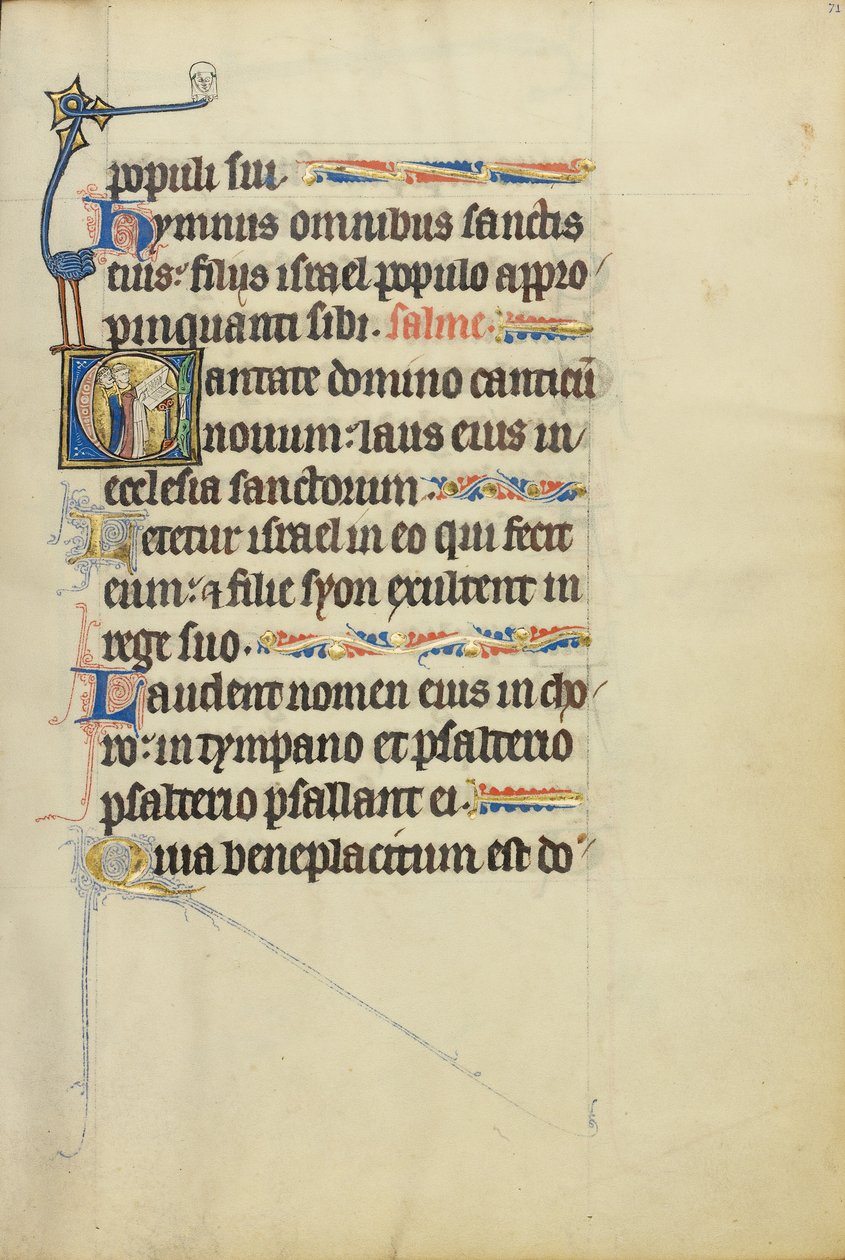 71
populi sui
hymnus omnibus sanctis
eius: filiis israel populo appro/
pinquanti sibi. salme.
Cantate domino canticū
nouum: laus eius in/
ecclesia sanctorum.
Letetur israel in eo qui fecit
eum: ⁊ filie syon exultent in
rege suo.
Laudent nomen eius in cho/
ro: in tympano et psalterio
psalterio psallant ei.
Quia beneplacitum est do/